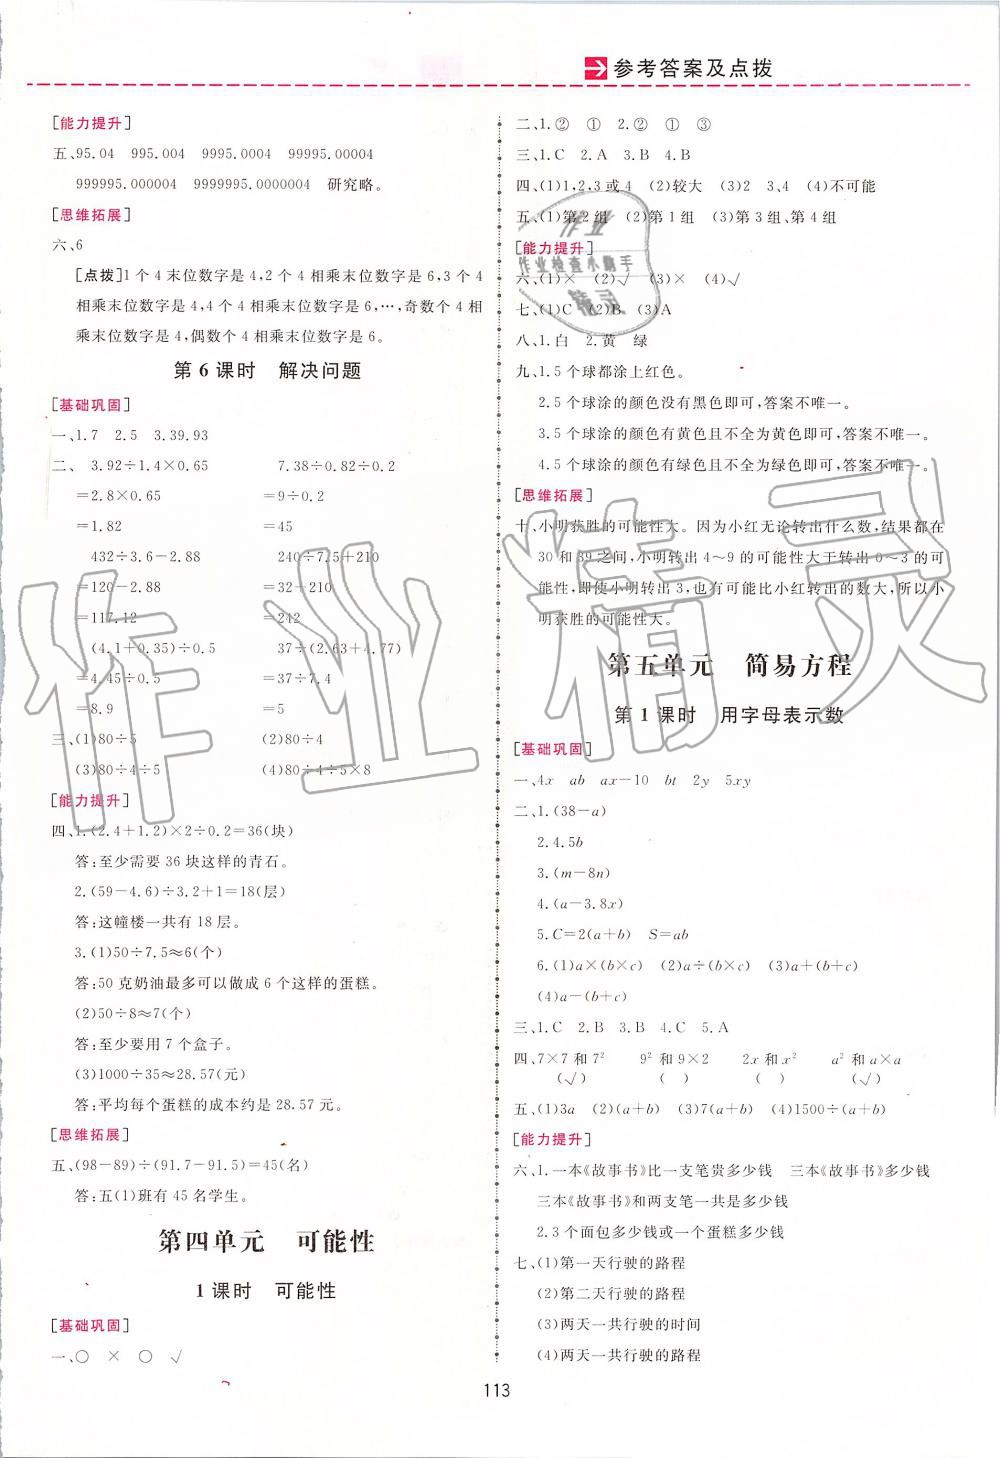 参考答案及点拨
[能力提升]
五、95.04 995.004 9995.0004 99995.00004
999995.000004 9999995.0000004 研究略。
[思维拓展]
六、6
[点拨]1个4末位数字是4,2个4相乘末位数字是6,3个4
相乘末位数字是4,4个4相乘末位数字是6,…,奇数个4相
乘末位数字是4,偶数个4相乘末位数字是6。
第6课时 解决问题
[基础巩固]
一、1.7 2.5 3.39.93
二、 3.92÷1.4×0.65 7.38÷0.82÷0.2
=2.8×0.65 =9÷0.2
=1.82 =45
432÷3.6-2.88 240÷7.5+210
=120-2.88 =32+210
=117.12 =242
(4.1+0.35)÷0.5 37÷(2.63+4.77)
=4.45÷0.5 =37÷7.4
=8.9 =5
三、(1)80÷5 (2)80÷4
(3)80÷4÷5 (4)80÷4÷5×8
[能力提升]
四、1.(2.4+1.2)×2÷0.2=36(块)
答:至少需要36块这样的青石。
2.(59-4.6)÷3.2+1=18(层)
答:这幢楼一共有18层。
3.(1)50÷7.5≈6(个)
答:50克奶油最多可以做成6个这样的蛋糕。
(2)50÷8≈7(个)
答:至少要用7个盒子。
(3)1000÷35≈28.57(元)
答:平均每个蛋糕的成本约是28.57元。
[思维拓展]
五、(98-89)÷(91.7-91.5)=45(名)
答:五(1)班有45名学生。
第四单元 可能性
1课时 可能性
[基础巩固]
一、○ × ○ √
二、1.② ① 2.② ① ③
三、1.C 2.A 3.B 4.B
四、(1)1,2,3或4 (2)较大 (3)2 3、4 (4)不可能
五、(1)第2组 (2)第1组 (3)第3组、第4组
[能力提升]
六、(1)× (2)√ (3)× (4)√
七、(1)C (2)B (3)A
八、1.白 2.黄 绿
九、1.5个球都涂上红色。
2.5个球涂的颜色没有黑色即可,答案不唯一。
3.5个球涂的颜色有黄色且不全为黄色即可,答案不唯一。
4.5个球涂的颜色有绿色且不全为绿色即可,答案不唯一。
[思维拓展]
十、小明获胜的可能性大。因为小红无论转出什么数,结果都在
30和39之间,小明转出4～9的可能性大于转出0～3的可
能性,即使小明转出3,也有可能比小红转出的数大,所以小
明获胜的可能性大。
第五单元 简易方程
第1课时 用字母表示数
[基础巩固]
一、4x ab ax-10 bt 2y 5xy
二、1.(38-a)
2.4.5b
3.(m-8n)
4.(a-3.8x)
5.C=2(a+b) S=ab
6.(1)a×(b×c) (2)a×b+a×c (3)a+(b+c)
(4)a-(b+c)
三、1.C 2.B 3.B 4.C 5.A
四、7×7和7² 9²和9×2 2x和x² a²和a×a
(√) ( ) ( ) (√)
五、(1)3a (2)(a+b) (3)7(a+b) (4)1500÷(a+b)
[能力提升]
六、1.一本《故事书》比一支笔贵多少钱 三本《故事书》多少钱
三本《故事书》和两支笔一共是多少钱
2.3个面包多少钱或一个蛋糕多少钱
七、(1)第一天行驶的路程
(2)第二天行驶的路程
(3)两天一共行驶的时间
(4)两天一共行驶的路程
113
作业
作业检查小助手
精灵
作业精灵